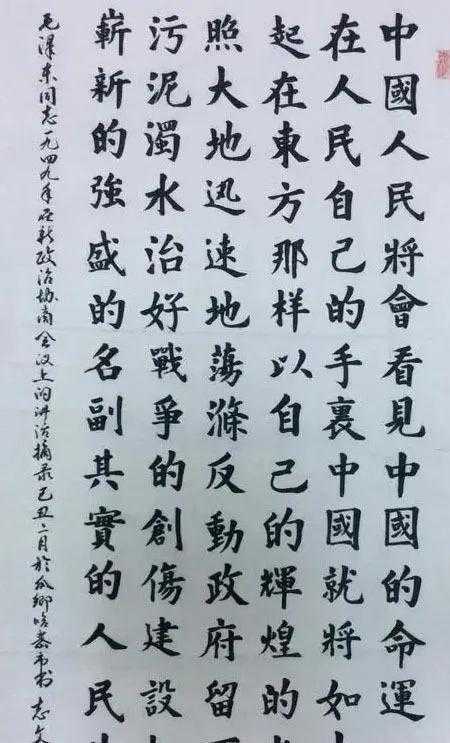 中國人民將會看見中國的命運
在人民自己的手裏中國就將如
起在東方那样以自己的輝煌的
照大地迅速地蕩滌反動政府留
污泥濁水治好戰爭的創傷建設
嶄新的強盛的名副其實的人民
毛澤东同志一九四九年在新政治协商会议上的讲话摘录己丑二月於瓜鄉 志文